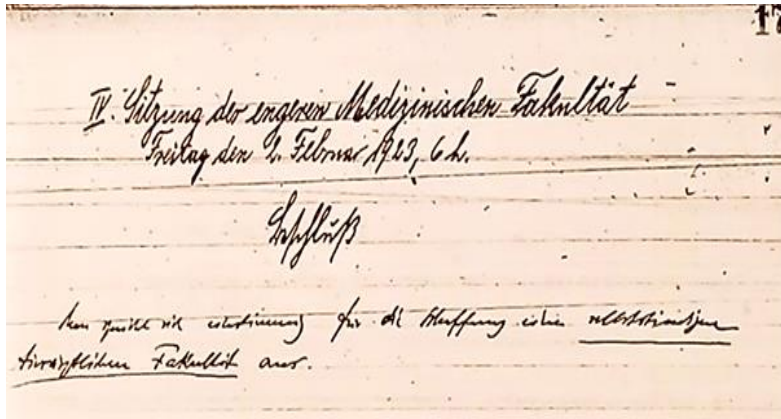 17
IV. Sitzung der engeren Medizinischen Fakultät
Freitag den 2. Februar 1923, 6 h.
Beschluß
Man spricht sich einstimmig für die Schaffung einer selbstständigen
tierärztlichen Fakultät aus.